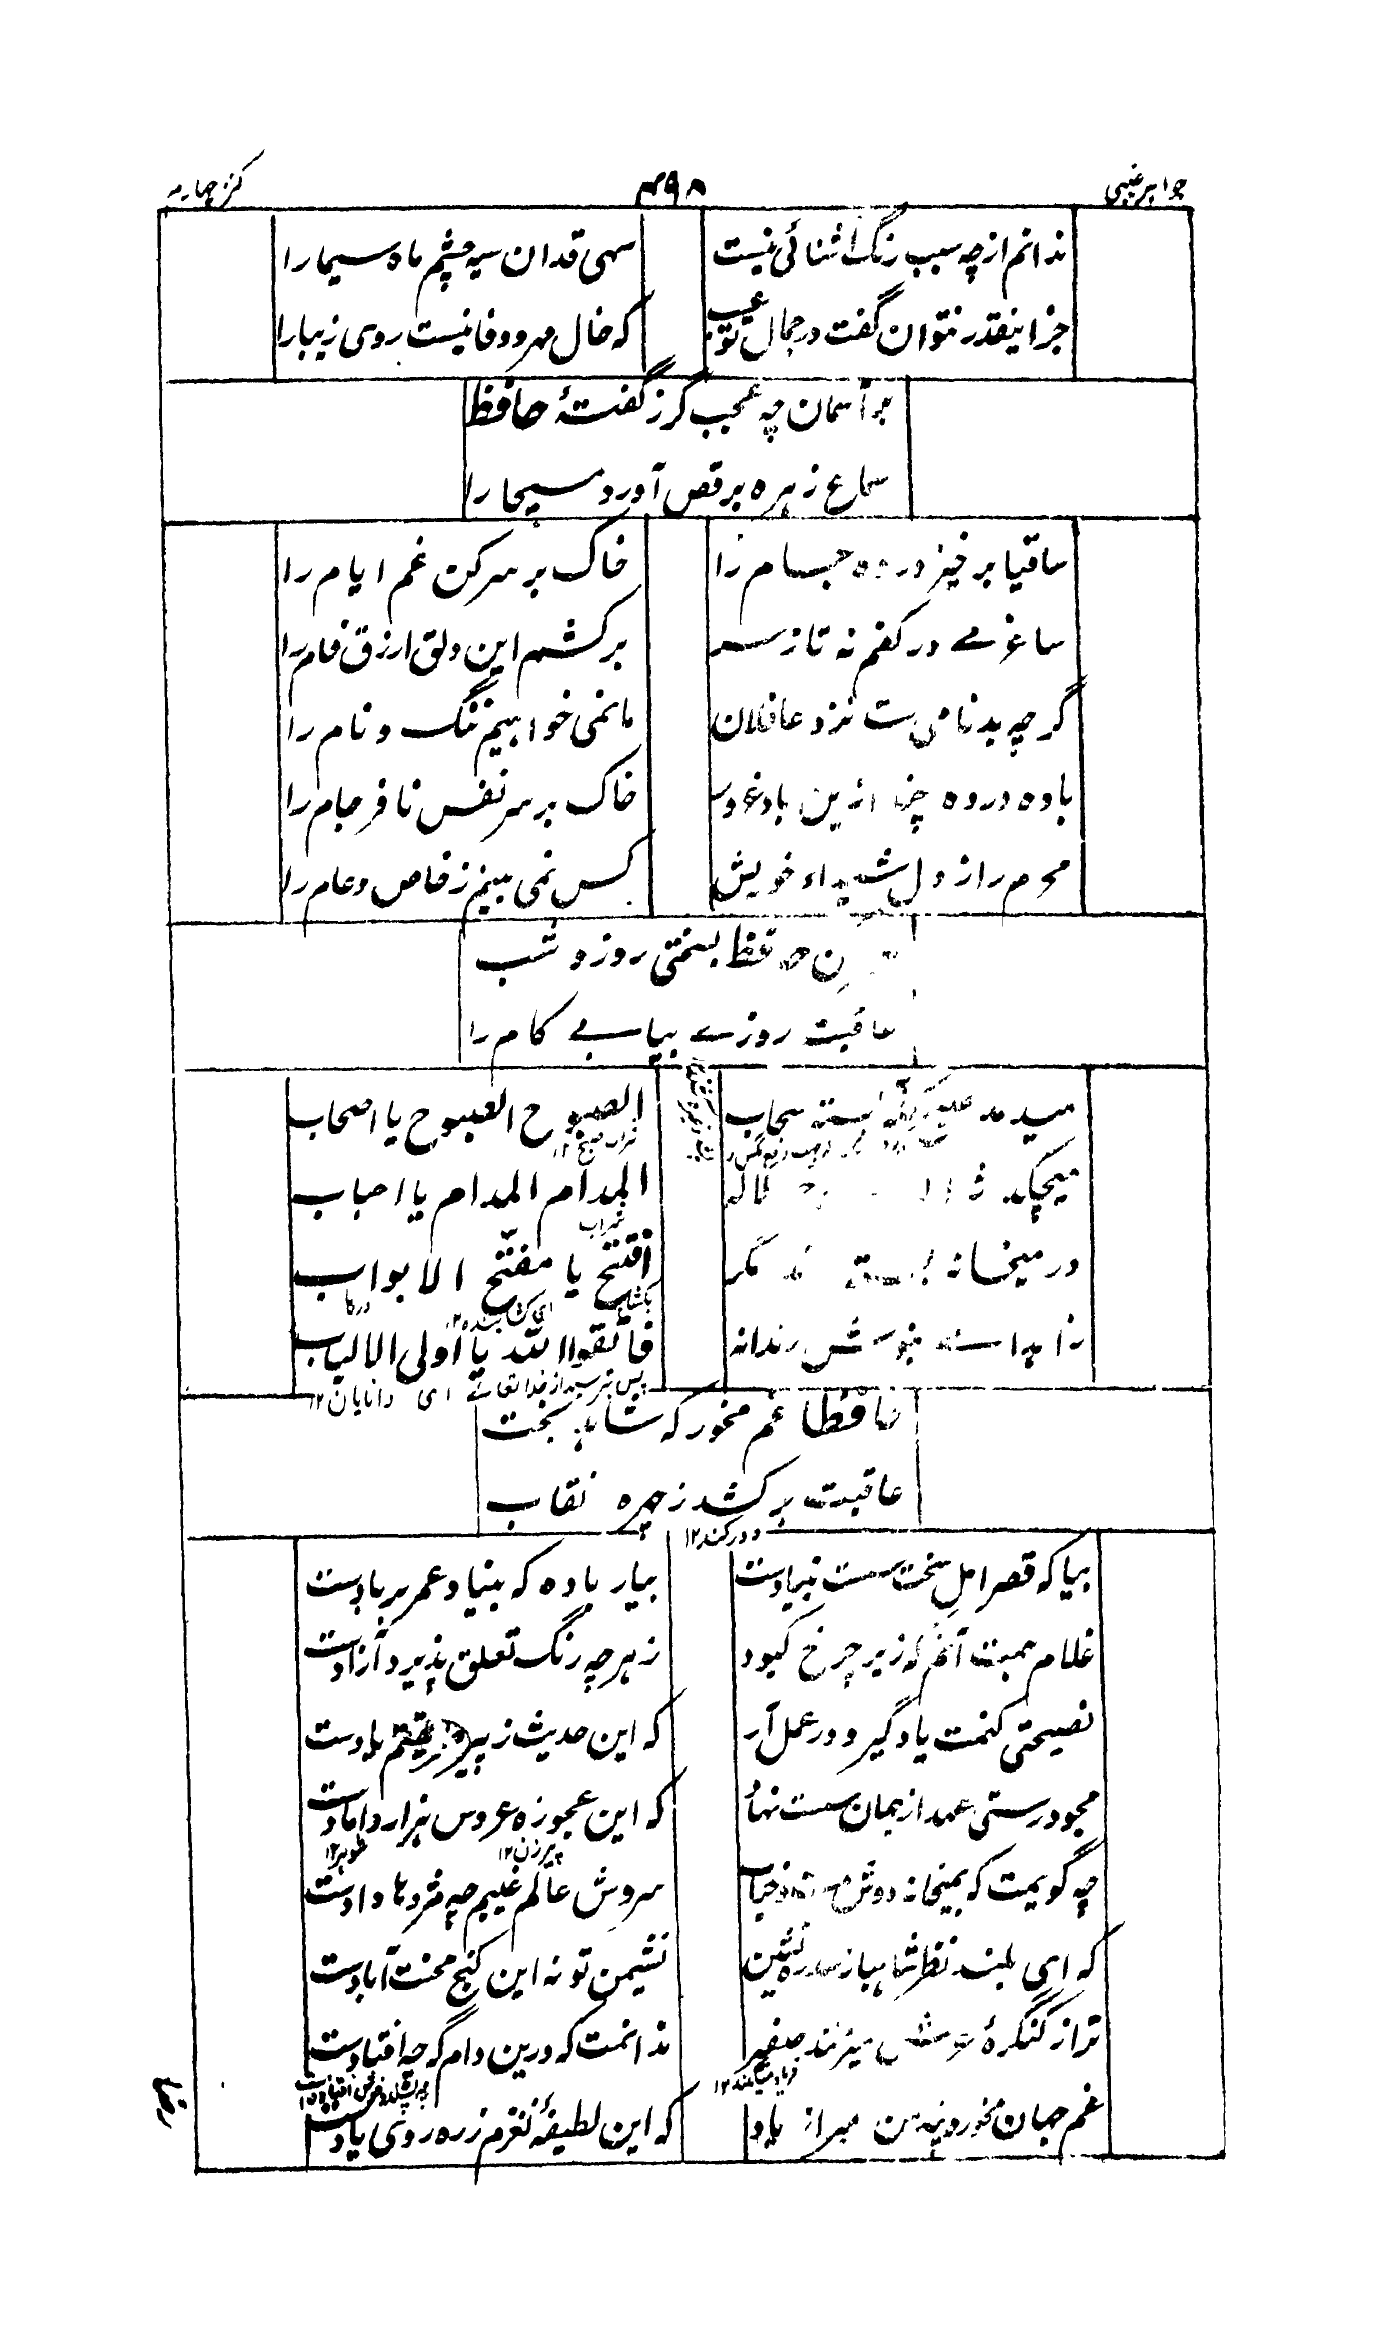 جواہر غیبی ۴۹۸ کنز چہارم
ندانم از چه سبب رنگ آشنائی نیست سہی قدان سیه چشم ماه سیما را
جز اینقدر نتوان گفت در جمال تو عیب که خال مہر و وفا نیست روی زیبا را
بر آسمان چه عجب گر ز گفتهٔ حافظ
سماع زہره برقص آورد مسیحا را
ساقیا برخیز در ده جام را خاک بر سر کن غم ایام را
ساغر مے در کفم نه تا ز سر برکشم این دلق ارزق فام را
گر چه بدنامی ست نزد عاقلان ما نمی خواہیم ننگ و نام را
باده در ده چند ازین باد غرور خاک بر سر نفس نافرجام را
محرم راز دل شیداء خویش کس نمی بینم ز خاص و عام را
حافظ بسختی روز و شب
عاقبت روزے بیابے کام را
میدمد بسته سحاب الصبوح الصبوح یا اصحاب
شراب صبح ۱۲
میچکد ژاله لاله المدام المدام یا احباب
شراب
در میخانه بسته اند مگر افتتح یا مفتح الابواب
بکشاے ای کشاینده ۱۲ درہا
زاہدا سے بنوش رندانه فاتقوا اللّٰه یا اولی الالباب
پس بترسید از خدا تعالے ای دانایان ۱۲
حافظا غم مخور که شاہد بخت
عاقبت برکشد ز چہره نقاب
دور کند ۱۲
بیا که قصر امل سخت سست بنیادست بیار باده که بنیاد عمر بر بادست
غلام ہمت آنم که زیر چرخ کبود ز ہر چه رنگ تعلق پذیرد آزادست
نصیحتی کنمت یاد گیر و در عمل آر که این حدیث ز پیر طریقتم یادست
مجو درستی عہد از جہان سست نہاد که این عجوزه عروس ہزار دامادست
پیرزن ۱۲ شوہر ۱۲
چه گویمت که بمیخانه دوش مست و خراب سروش عالم غیبم چه مژدہا دادست
که ای بلند نظر شاہباز سدره نشین نشیمن تو نه این کنج محنت آبادست
ترا ز کنگرهٔ عرش میزنند صفیر ندانمت که درین دامگه چه افتادست
فریاد میکنند ۱۲
غم جہان مخور و پند من مبر از یاد که این لطیفهٔ نغزم ز ره روی یادست
رضا